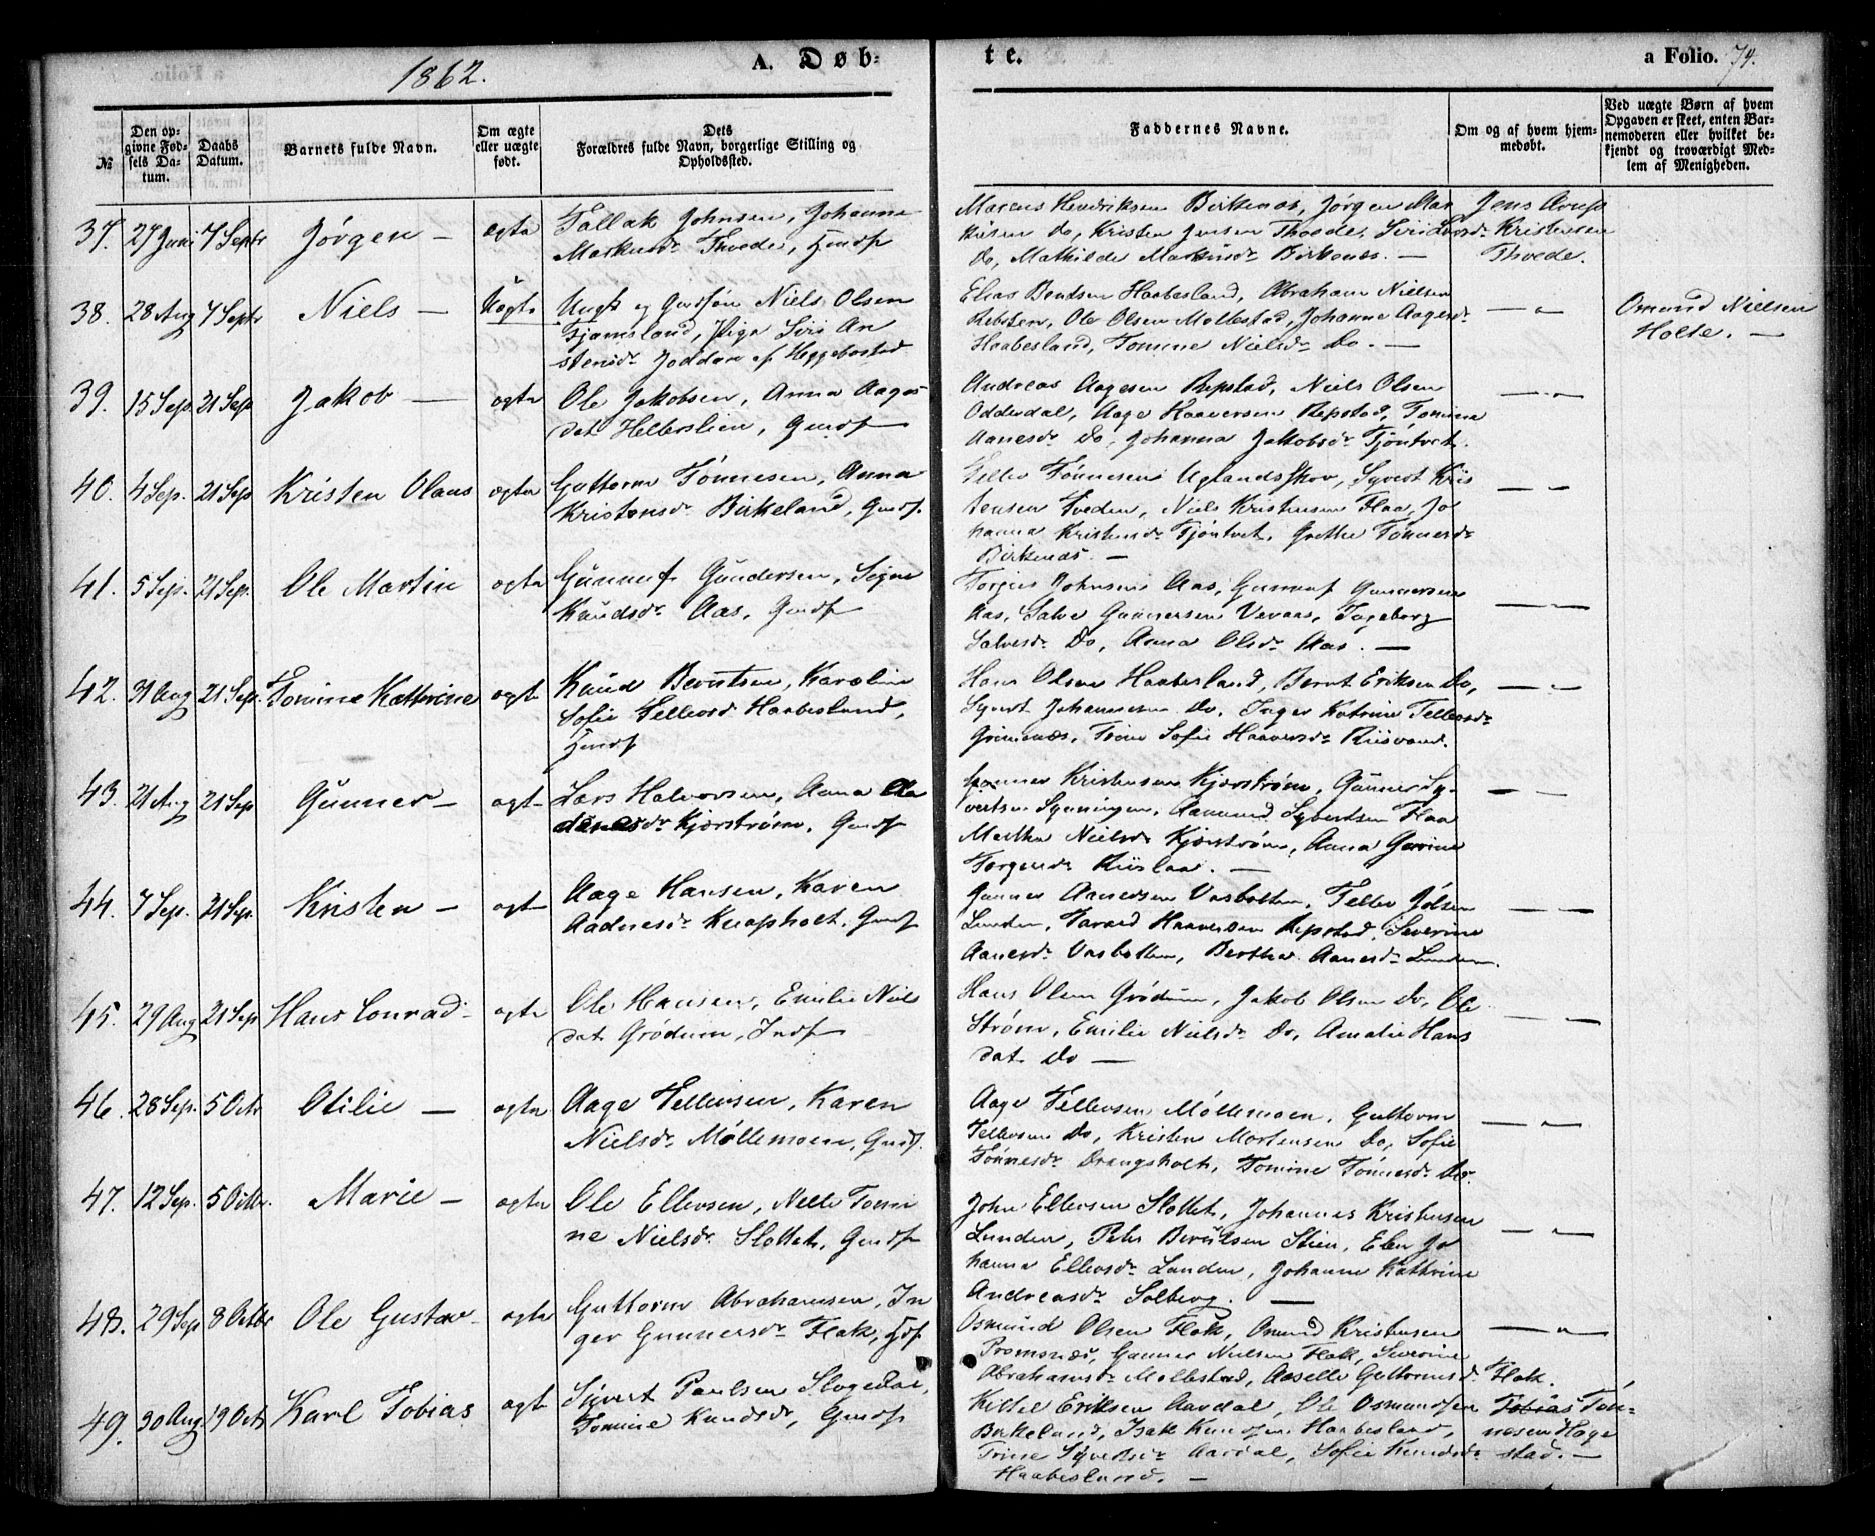 1862.
A. Døb-
te.
a Folio. 74.
№
Den op-
givne Fød-
sels Da-
tum.
Daabs
Datum.
Barnets fulde Navn.
Om ægte
eller uægte
født.
Dets
Forældres fulde Navn, borgerlige Stilling og
Opholdssted.
Faddernes Navne.
Om og af hvem hjem-
medøbt.
Ved uægte Børn af hvem
Opgaven er skeet, enten Bar-
nemoderen eller hvilket be-
kjendt og troværdigt Med-
lem af Menigheden.
37. 27 Juni 7 Septr Jørgen — ægte Tallak Johnsen, Johanne
Markusdr Thvede, Gmdf
Marcus Hendriksen Birkenæs, Jørgen Mar
kusen Do, Kristen Jensen Thvede, Siri Larsdr
Do, Mathilde Markusdr Birkenæs. —
Jens
Kristensen
Thvede.
38. 28 Aug 7 Septr Niels — Uægte Ungk og Gmdsøn Niels Olsen
Tjamsland, Pige Siri An
stensdr Joddan af Heggebostad
Elias Bentsen Haabesland, Abraham Nielsen
Rebsten, Ole Olsen Mollestad, Johanne Aagesdr
Haabesland, Tomine Nielsdr Do. —
— " —
Omund Nielsen
Holte. —
39. 15 Sep. 21 Sep Jakob — ægte Ole Jakobsen, Anna Aages
dat Hellerslien, Gmdf
Andreas Aagesen Repstad, Niels Olsen
Oddersdal, Aage Haaversen Repstad, Tomine
Aanesdr Do, Johanna Jakobsdr Tjøntvet.
— " —
40. 4 Sep. 21 Sep Kristen Olaus ægte Guttorm Tønnesen, Anna
Kristensdr Birkeland, Gmdf.
Tellev Tønnesen Uglandsskov, Syvert Kris
tensen Tveden, Niels Kristensen Flaa, Jo
hanna Kristensdr Tjøntvet, Grethe Tønnesdr
Birkenæs. —
— " —
41. 5 Sep. 21 Sep. Ole Martin ægte Gunnuf Gundersen, Signe
Knudsdr Aas, Gmdf
Torgius Johnsen Aas, Gunnuf Gunnersen
Aas, Salve Gunnersen Vevaas, Ingeborg
Salvesdr Do, Anna Olsdr Aas. —
— " —
42. 31 Aug 21 Sep. Tomine Kathrine ægte Knud Berntsen, Karoline
Sofie Tellevsd Haabesland,
Gmdf
Hans Olsen Haabesland, Bernt Eriksen Do,
Syvert Johannesen Do, Inger Katrine Tellevsdr
Grimenæs, Trine Sofie Haaversdr Risvand.
— " —
43. 21 Aug 21 Sep Gunner — ægt Lars Halvorsen, Anna Aa
denesdr Kjerstrøm, Gmdf
Gunner Kristensen Kjerstrøm, Gunner Sy-
vertsen Senningen, Aanund Syvertsen Flaa
Martha Nielsdr Kjerstrøm, Anna Gurine
Torgersdr Rislaa. —
— " —
44. 7 Sep. 21 Sep. Kristen — ægt Aage Hansen, Karen
Aadnesdr Knapholt, Gmdf
Gunner Aanersen Vasbotten, Tellev Jølsen
Lunden, Tarald Haaversen Repstad, Severine
Aanesdr Vasbotten, Berthe Aanesdr Lunden.
— " —
45. 29 Aug 21 Sep Hans Conrad — ægte Ole Hansen, Emilie Niels
dat Grødum, Indf
Hans Olsen Grødum, Jakob Olsen Do, Ole
Strøm, Emilie Nielsdr Do, Amalie Hans
dat Do —
— " —
46. 28 Sep. 5 Octr Otilie — ægte Aage Tellevsen, Karen
Nielsdr Møllemoen, Gmdf.
Aage Tellevsen Møllemoen, Guttorm
Tellevsen Do, Kristen Mortensen Do, Sofie
Tønnesdr Drangsholt, Tomine Tønnesdr Do.
— " —
47. 12 Sep. 5 Octbr. Marie — ægte Ole Ellevsen, Nelle Tomi
ne Nielsdr Slottet, Gmdf
John Ellevsen Slottet, Johannes Kristensen
Lunden, Peter Berntsen Stien, Elen Jo
hanna Ellevsdr Lunden, Johanne Kathrine
Andreasdr Solberg. —
— " —
48. 29 Sep 8 Octbr Ole Gustav — ægte Guttorm Abrahamsen, In
ger Gunnersdr Flak, Gmdf
Osmund Olsen Flak, Omund Kristensen
Tromsnæs, Gunner Nielsen Flak, Severine
Abrahamsdr Mollestad, Aaselle Guttormsd. Flak.
— " —
49. 30 Aug 19 Octr Karl Tobias ægt Syvert Paulsen Slogedal,
Tomine Knudsdr, Gmdf
Kittel Eriksen Aardal, Ole Osmundsen
Birkeland, Isak Knudsen Haabesland,
Trine Syvertsdr Aardal, Sofie Knudsdr
Haabesland. —
Tobias Tøn-
nesen Hage
stad. —